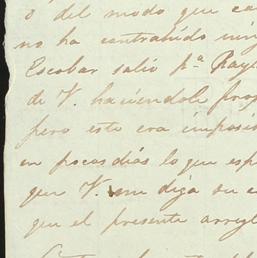 o del modo que ca
no ha contrahido nin
Escobar salió pª Ray
de V. haciéndole prop
pero esto era imposi
en pocos dias lo que esp
que V. me diga su
que el presente arregl